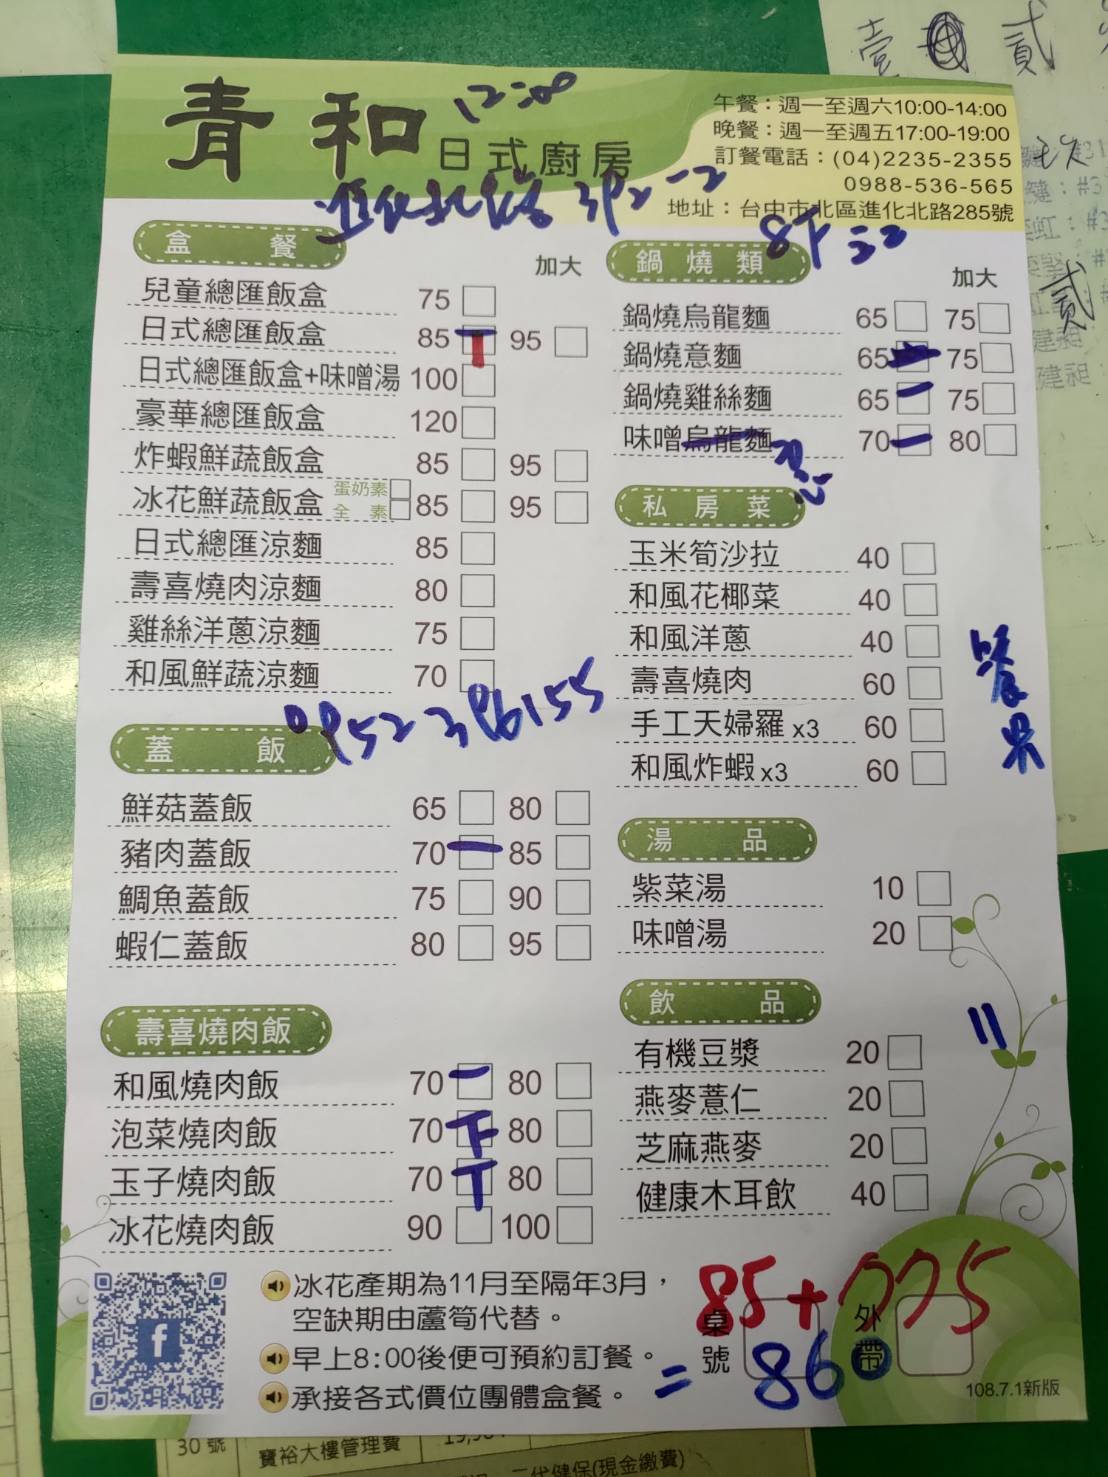 青和 日式廚房
12:00
午餐：週一至週六10:00-14:00
晚餐：週一至週五17:00-19:00
訂餐電話：(04)2235-2355
0988-536-565
地址：台中市北區進化北路285號
進化北路392-2
8F之2
盒 餐 加大
兒童總匯飯盒 75
日式總匯飯盒 85 95
日式總匯飯盒+味噌湯 100
豪華總匯飯盒 120
炸蝦鮮蔬飯盒 85 95
冰花鮮蔬飯盒 蛋奶素 全素 85 95
日式總匯涼麵 85
壽喜燒肉涼麵 80
雞絲洋蔥涼麵 75
和風鮮蔬涼麵 70
0952396155
蓋 飯
鮮菇蓋飯 65 80
豬肉蓋飯 70 一 85
鯛魚蓋飯 75 90
蝦仁蓋飯 80 95
壽喜燒肉飯
和風燒肉飯 70 一 80
泡菜燒肉飯 70 80
玉子燒肉飯 70 80
冰花燒肉飯 90 100
鍋燒類 加大
鍋燒烏龍麵 65 75
鍋燒意麵 65 75
鍋燒雞絲麵 65 一 75
味噌烏龍麵 70 一 80
私房菜
玉米筍沙拉 40
和風花椰菜 40
和風洋蔥 40
壽喜燒肉 60
手工天婦羅x3 60
和風炸蝦x3 60
湯 品
紫菜湯 10
味噌湯 20
飲 品
有機豆漿 20
燕麥薏仁 20
芝麻燕麥 20
健康木耳飲 40
11
冰花產期為11月至隔年3月，
空缺期由蘆筍代替。
早上8:00後便可預約訂餐。
承接各式價位團體盒餐。
桌號 外帶
85+775
=860
108.7.1新版
壹 貳
貳
30 號 寶裕大樓管理費
二代健保(現金繳費)